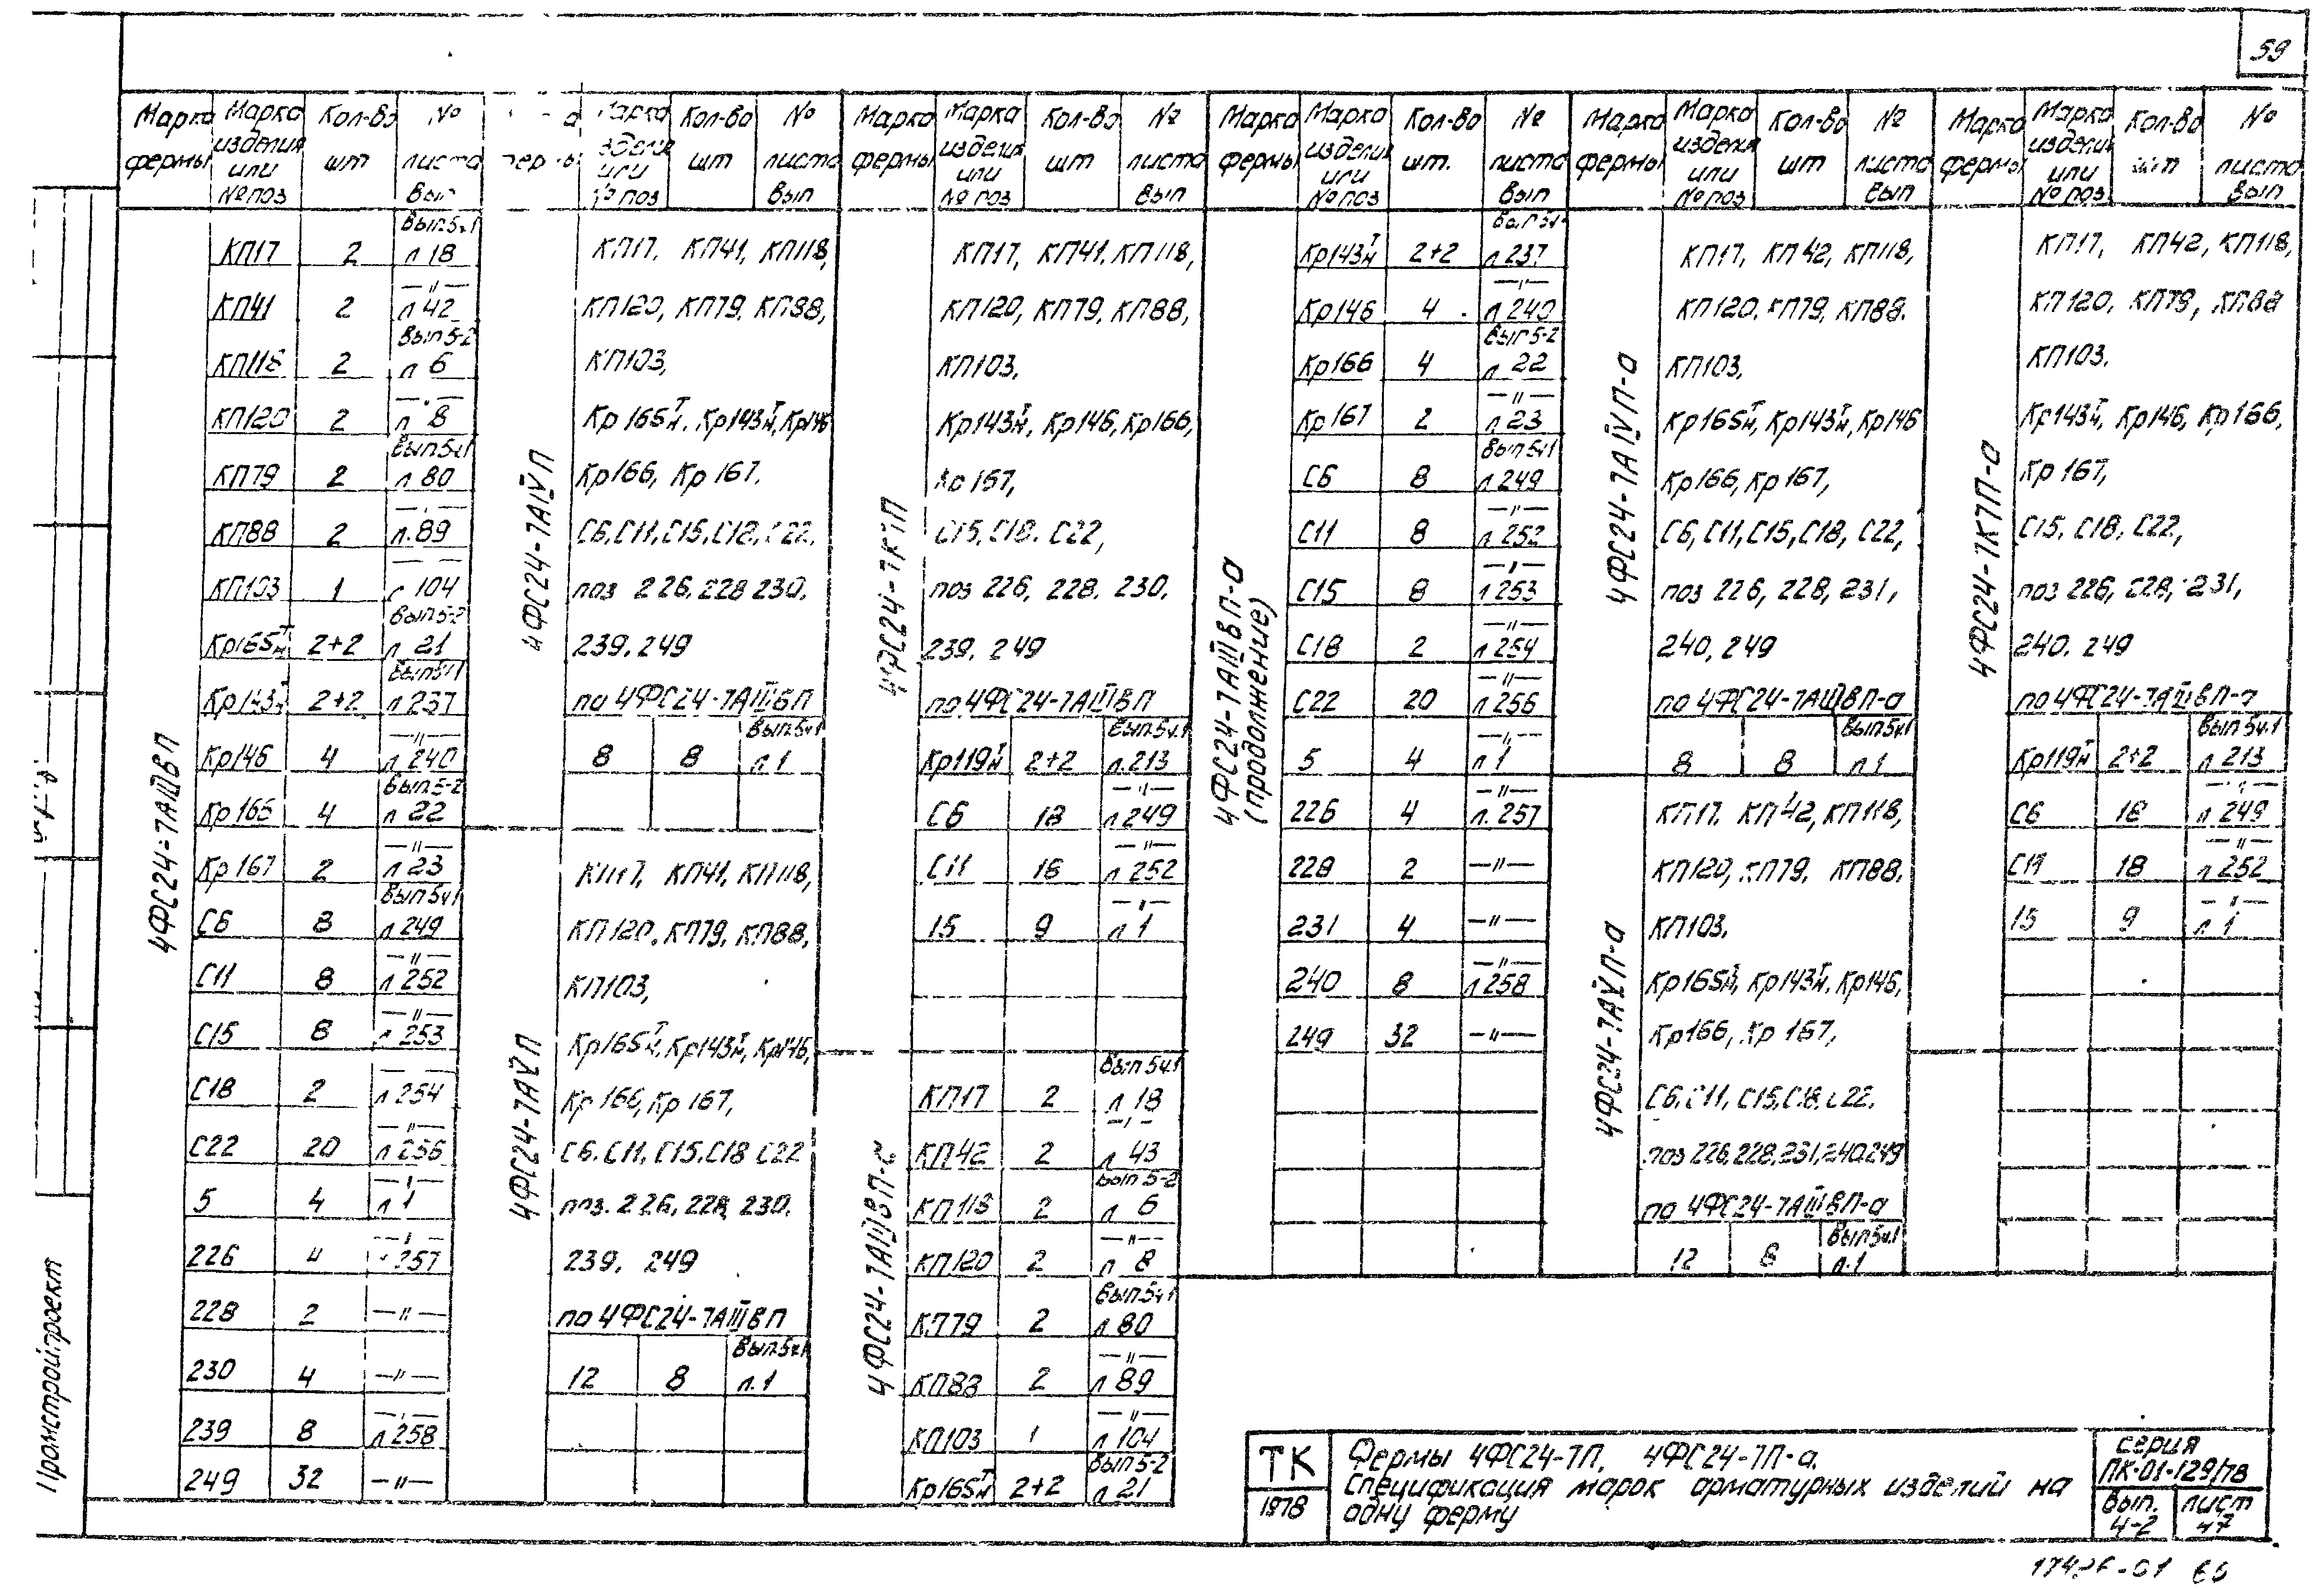 59
Марка фермы | Марка изделия или № поз | Кол-во шт | № листа Вып
4ФС24-7АШВП
КП17 2 Вып.5ч1 л 18
КП41 2 —"— л 42
КП118 2 Вып 5-2 л 6
КП120 2 —"— л 8
КП79 2 Вып.5ч1 л 80
КП88 2 —"— л.89
КП103 1 104
Кр165ᵀн 2+2 Вып 5-2 л 21
Кр143ᵀн 2+2 Вып5ч1 л 237
Кр146 4 —"— л 240
Кр166 4 Вып.5-2 л 22
Кр167 2 —"— л 23
С6 8 Вып 5ч1 л 249
С11 8 —"— л 252
С15 8 —"— л 253
С18 2 л 254
С22 20 —"— л 256
5 4 —"— л 1
226 4 —"— 257
228 2 —"—
230 4 —"—
239 8 —"— л 258
249 32 —"—
Марка изделия или № поз | Кол-во шт | № листа Вып
4ФС24-7АIVП
КП17, КП41, КП118,
КП120, КП79, КП88,
КП103,
Кр165ᵀн, Кр143ᵀн, Кр146
Кр166, Кр167,
С6, С11, С15, С18, С22,
поз 226, 228 230,
239, 249
по 4ФС24-7АШВП
8 8 Вып.5ч1 л.1
4ФС24-7АVП
КП17, КП41, КП118,
КП120, КП79, КП88,
КП103,
Кр165ᵀн, Кр143ᵀн, Кр146,
Кр166, Кр167,
С6, С11, С15, С18 С22
поз. 226, 228, 230,
239, 249
по 4ФС24-7АШВП
12 8 Вып.5ч1 л.1
Марка фермы | Марка изделия или № поз | Кол-во шт | № листа Вып
4ФС24-7К7П
КП17, КП41, КП118,
КП120, КП79, КП88,
КП103,
Кр143ᵀн, Кр146, Кр166,
Кр167,
С15, С18, С22,
поз 226, 228, 230,
239, 249
по 4ФС24-7АШВП
Кр119ᵀн 2+2 Вып.5ч.1 л.213
С6 18 —"— л 249
С11 18 —"— л 252
15 9 —"— л 1
4ФС24-7АШВП-а
КП17 2 Вып 5ч1 л 18
КП42 2 —"— л 43
КП118 2 Вып 5-2 л 6
КП120 2 —"— л 8
КП79 2 Вып.5ч1 л 80
КП88 2 —"— л 89
КП103 1 —"— л 104
Кр165ᵀн 2+2 Вып 5-2 л 21
Марка фермы | Марка изделия или № поз | Кол-во шт. | № листа Вып
4ФС24-7АШВП-а
(продолжение)
Кр143ᵀн 2+2 Вып 5ч1 л 237
Кр146 4 —"— л 240
Кр166 4 Вып 5-2 л 22
Кр167 2 —"— л 23
С6 8 Вып 5ч1 л 249
С11 8 —"— л 252
С15 8 —"— л 253
С18 2 —"— л 254
С22 20 —"— л 256
5 4 —"— л 1
226 4 —"— л. 257
228 2 —"—
231 4 —"—
240 8 —"— л 258
249 32 —"—
Марка фермы | Марка изделия или № поз | Кол-во шт | № листа Вып
4ФС24-7АIVП-а
КП17, КП42, КП118,
КП120, КП79, КП88.
КП103,
Кр165ᵀн, Кр143ᵀн, Кр146
Кр166, Кр167,
С6, С11, С15, С18, С22,
поз 226, 228, 231,
240, 249
по 4ФС24-7АШВП-а
8 8 Вып.5ч1 л 1
4ФС24-7АVП-а
КП17, КП42, КП118,
КП120, КП79, КП88,
КП103,
Кр165ᵀн, Кр143ᵀн, Кр146,
Кр166, Кр167,
С6, С11, С15, С18, С22,
поз 226, 228, 231, 240, 249
по 4ФС24-7АШВП-а
12 8 Вып5ч1 л.1
Марка фермы | Марка изделия или № поз | Кол-во шт | № листа Вып
4ФС24-7К7П-а
КП17, КП42, КП118,
КП120, КП79, КП88
КП103.
Кр143ᵀн, Кр146, Кр166,
Кр167,
С15, С18, С22,
поз 226, 228, 231,
240, 249
по 4ФС24-7АШВП-а
Кр119ᵀн 2+2 Вып 5ч.1 л 213
С6 18 —"— л 249
С11 18 —"— л 252
15 9 —"— л 1
Промстройпроект
ТК
1978
Фермы 4ФС24-7П, 4ФС24-7П-а.
Спецификация марок арматурных изделий на
одну ферму
серия
ПК-01-129/78
Вып. 4-2
лист 47